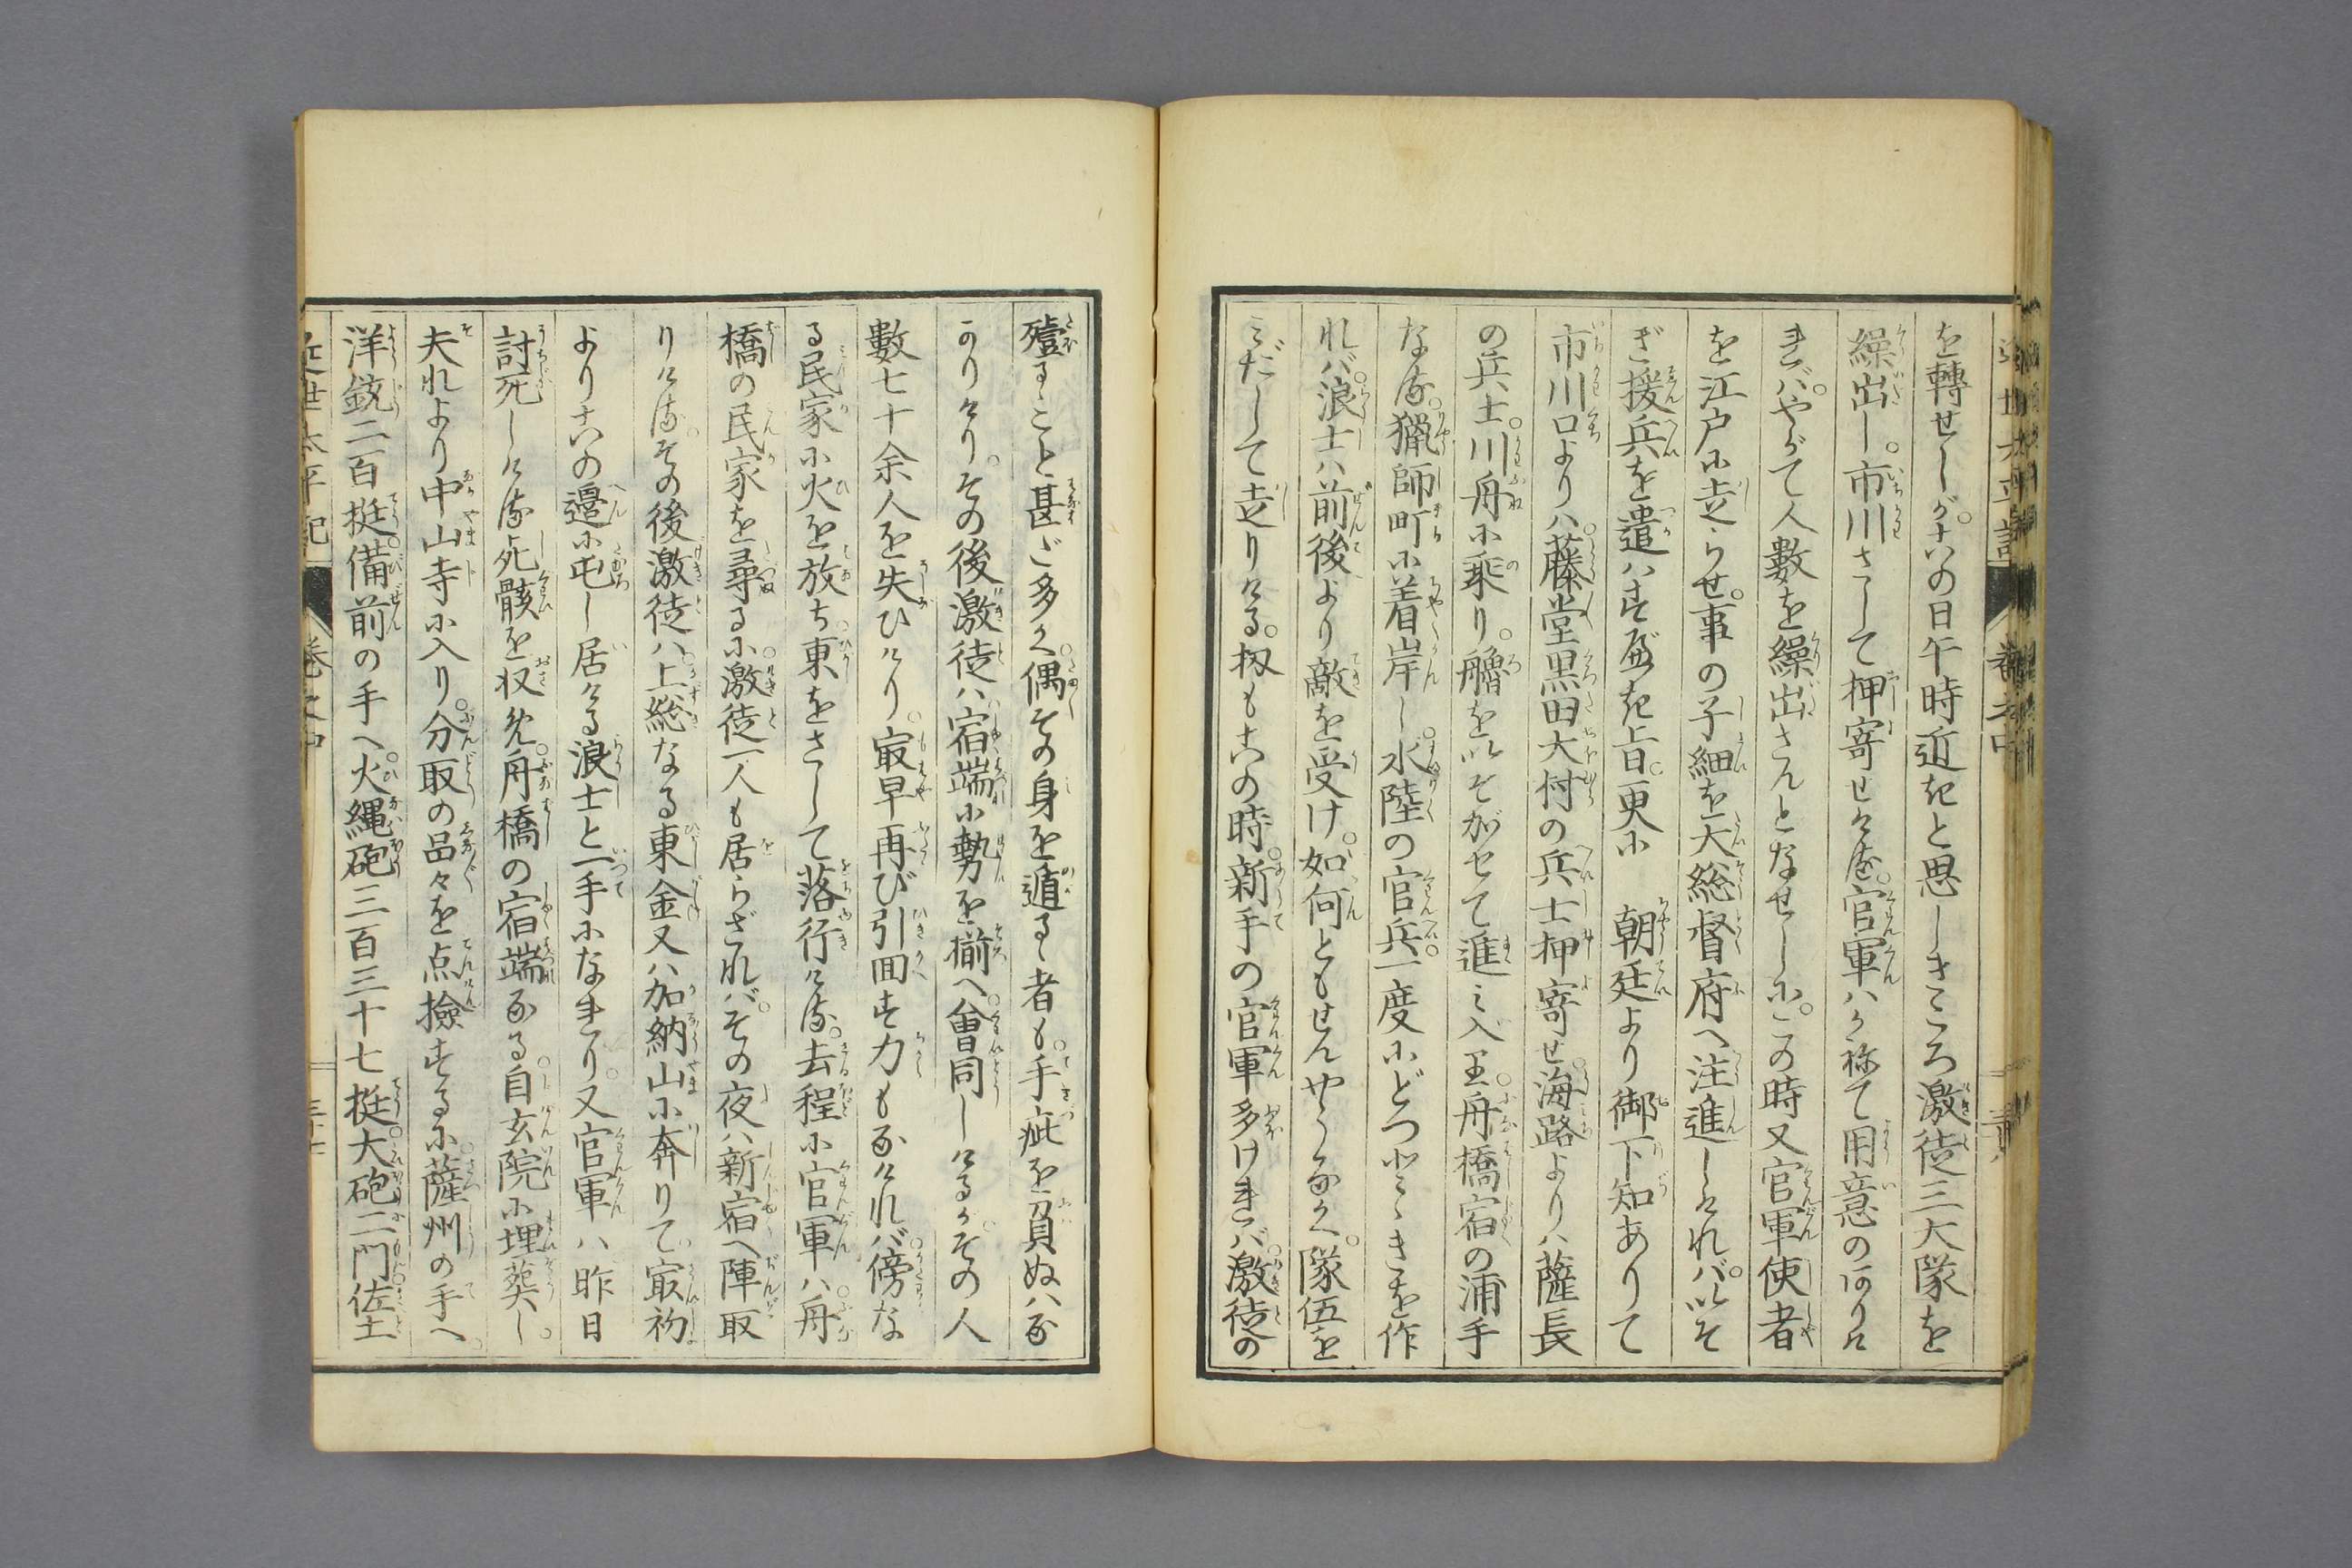 を轉せしが。此の日午時近きと思しきころ激徒三大隊を
繰出し。市川さして押寄せければ。官軍ハかねて用意の事なりけ
れバ。やがて人數を繰出さんとなせしに。この時又官軍使者
を江戸に立らせ。事の子細を大総督府へ注進しけれバ。いそ
ぎ援兵を遣ハすべき旨。更に　朝廷より御下知ありて
市川口よりハ。藤堂黒田大村の兵士押寄せ。海路よりハ薩長
の兵士。川舟に乘り。艪をいそがせて進ミ入り。舟橋宿の浦手
なる。獵師町に着岸し。水陸の官兵。一度にどつとときを作
れバ。浪士ハ前後より敵を受け。如何ともせんやうなく。隊伍を
ミだして立りける。扨も此の時。新手の官軍多けれバ。激徒の
殪るゝこと甚ど多く。偶その身を遁るゝ者も。手疵を負ぬハな
かりけり。その後激徒ハ宿端に勢を揃へ。會同しけるが。その人
數七十余人を失ひけり。最早再び引回す力もなけれバ。傍な
る民家に火を放ち。東をさして落行ける。去程に官軍ハ。舟
橋の民家を尋るに。激徒一人も居らざれバ。その夜ハ新宿へ陣取
りける。その後激徒ハ。上総なる東金又ハ加納山に奔りて。最初
より此の邉に屯し居ける浪士と一手になれり。又官軍ハ昨日
討死しける死骸を収め。舟橋の宿端なる。自玄院に埋葬し。
夫れより中山寺に入り。分取の品々を点撿するに。薩州の手へ。
洋銃二百挺。備前の手へ。火縄砲三百三十七挺。大砲二門。佐土
近世太平記　巻之中